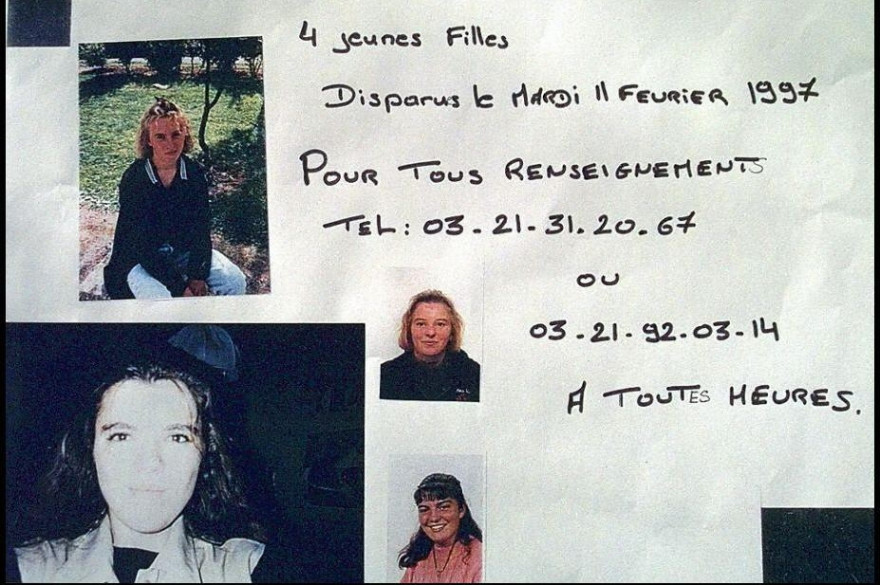 4 jeunes Filles
Disparus le MARDi 11 FEVRIER 1997
POUR TOUS RENSEIGNEMENTS
TEL: 03-21-31.20.67
OU
03-21-92-03-14
A TOUTES HEURES.